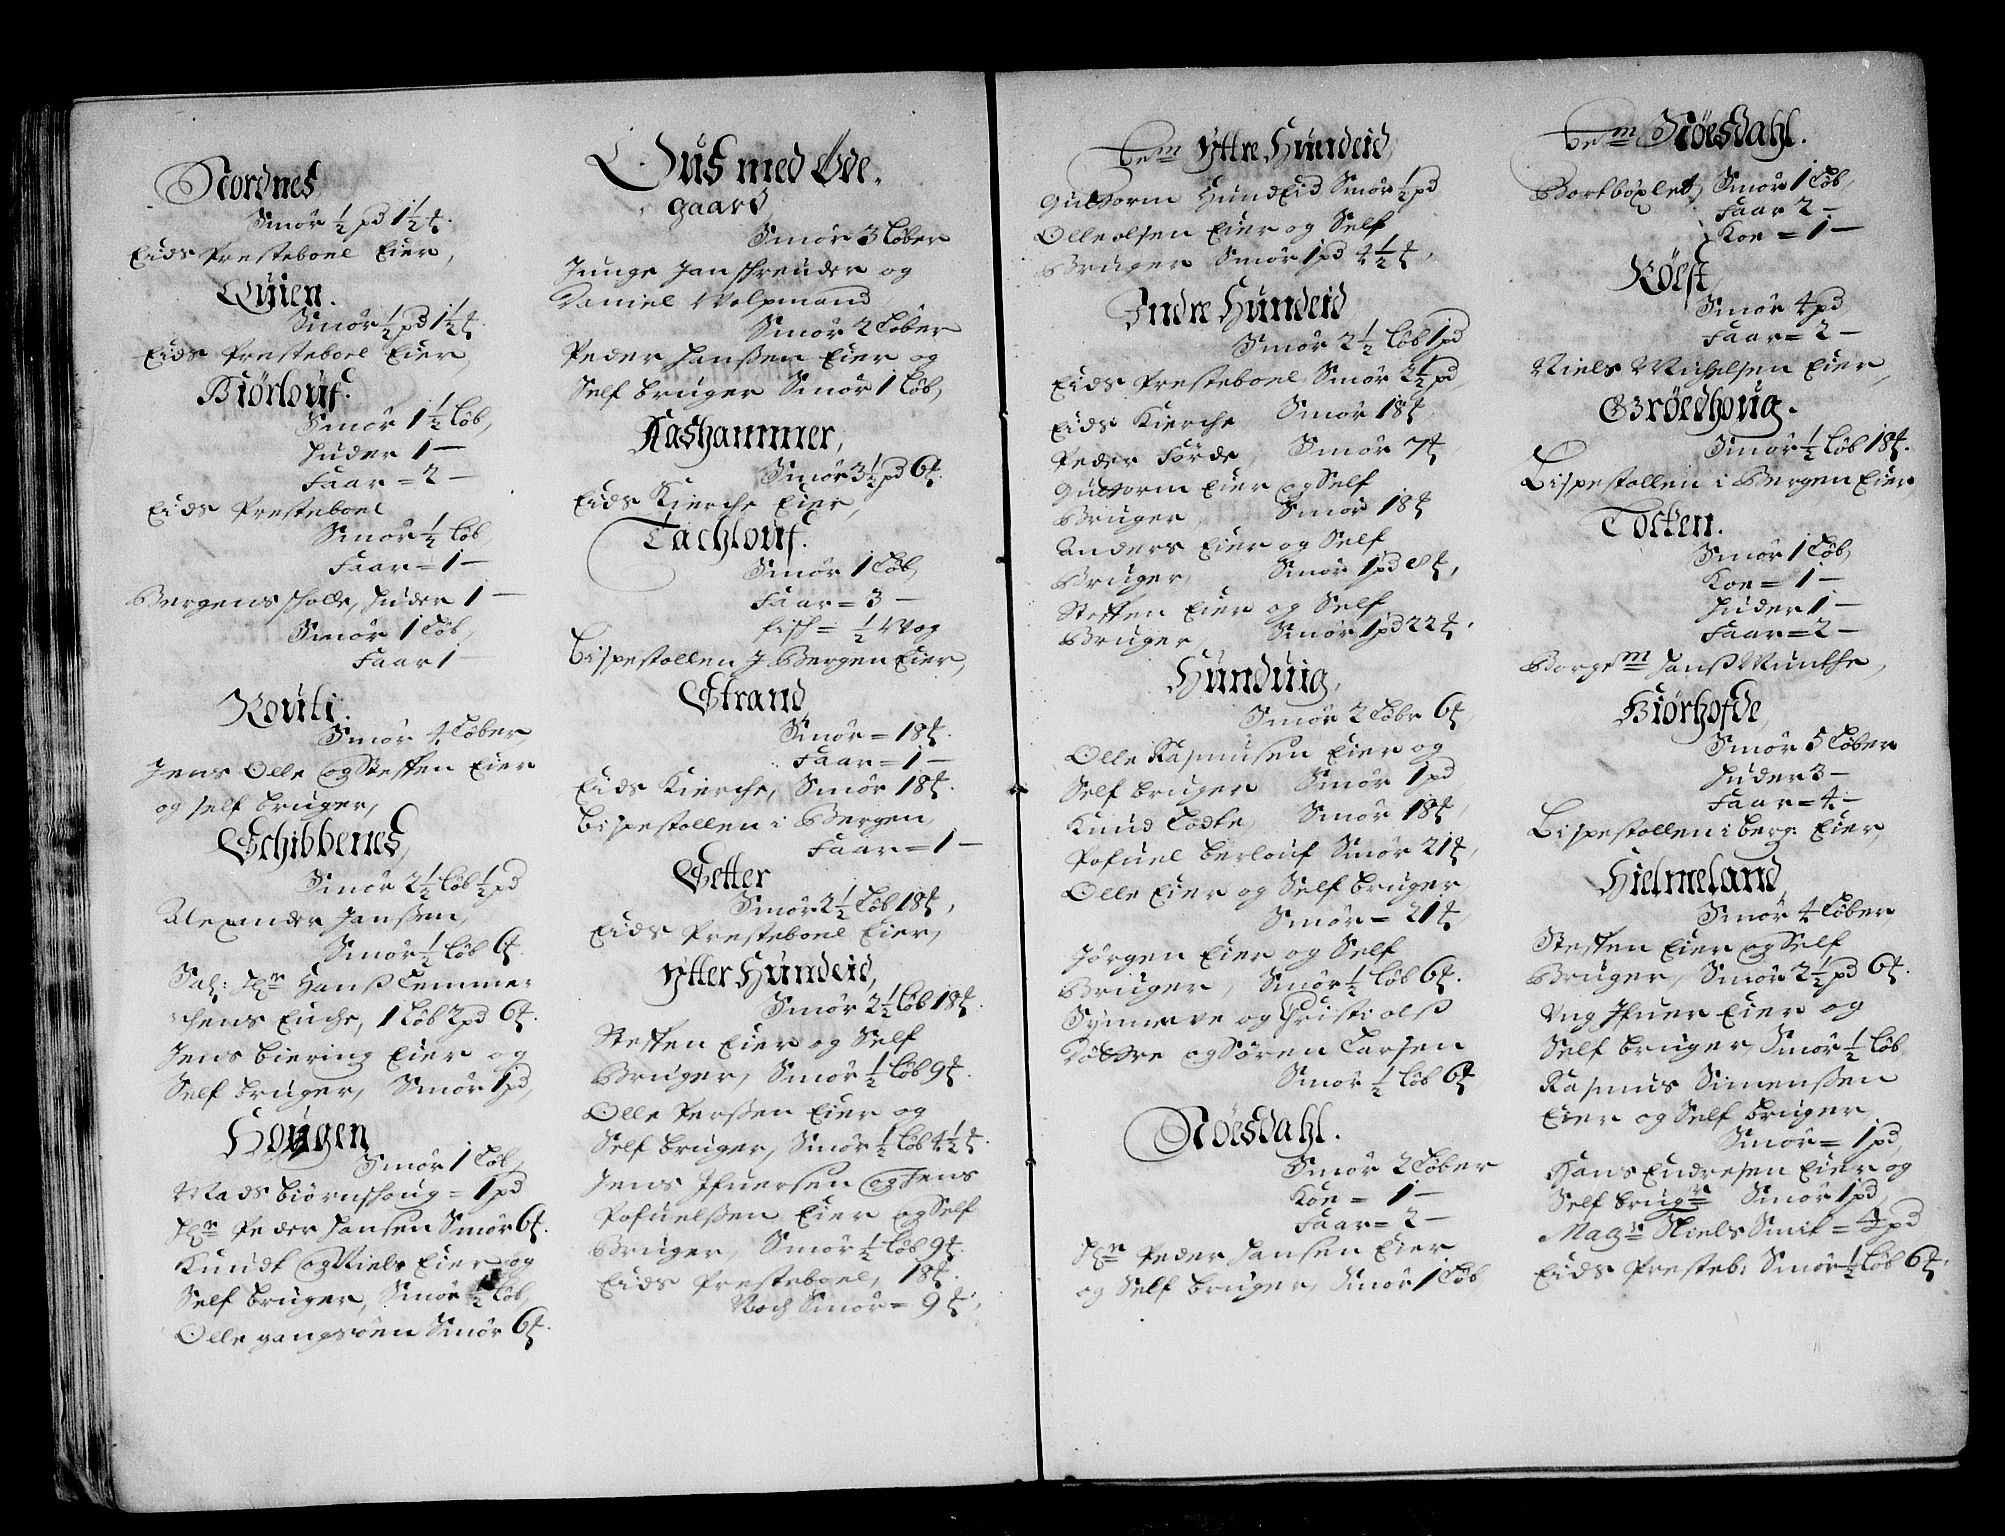 Nordnes
Smör ½ pd 1½ ℔.
Eids Presteboel Eier,
Quien.
Smör ½ pd 1½ ℔.
Eids Presteboel Eier,
Biörlouf.
Smör 1½ Löb,
Huder 1 —
Faar = 2 —
Eids Presteboel
Smör ½ Löb
Faar = 1 —
Bergens Huder 1 —
Smör 1 Löb,
Faar 1 —
Routi.
Smör 4 Löber,
Jens Olle og Steffen Eier
og self bruger,
Schibbenes,
Smör 2½ Löb ½ pd
Alexander Hanßen,
Smör ½ Löb 6 ℔.
Sal: Hr Hanß Lemme:
chens Enche, 1 Löb 2 pd 6 ℔.
Jens biering Eier og
Self bruger, Smör 1 pd,
Hougen
Smör 1 Löb,
Mads biörnshoug = 1 pd
Hr Peder Hansen Smör 6 ℔.
Knudt og Niels Eier og
Self bruger, Smör ½ Löb,
Olle gangsöen Smör 6 ℔.
Huus med Öde-
gaard
Smör 3 Löber
Junge Jan Schreuder og
Daniel Wolpmand
Smör 2 Löber
Peder Hanßen Eier og
Self bruger Smör 1 Löb,
Rashammer,
Smör 3½ pd 6 ℔.
Eids Kierche Eier,
Tachlouf.
Smör 1 Löb,
Faar = 3 —
fisch = ½ Wog
Bispestollen J Bergen Eier,
Strand
Smör = 18 ℔.
Faar = 1 —
Eids Kierche, Smör 18 ℔.
Bispestollen i Bergen
Faar = 1 —
Setter
Smör 2½ Löb 18 ℔,
Eids Presteboel Eier,
Ytter Hundeid,
Smör 2½ Löb 18 ℔.
Steffen Eier og Self
Bruger, Smör ½ Löb 9 ℔.
Olle Perßen Eier og
Self bruger, Smör ½ Löb 4½ ℔.
Jens Ifuersen og Jens
Pofuelßen Eier og Self
Bruger, Smör ½ Löb 9 ℔.
Eids Presteboel, 18 ℔.
Noch Smör = 9 ℔.
Bem Yttre Hundeid
Guttorm Hundeid Smör ½ pd
Olle olsen Eier og Self
Bruger Smör 1 pd 4½ ℔,
Indre Hundeid
Smör 2½ Löb 1 pd
Eids Presteboel Smör 2½ pd
Eids Kierche, Smör 18 ℔,
Peder Förde, Smör 7 ℔,
Guttorm Eier og Self
Bruger, Smör 18 ℔
Anders Eier og Self
Bruger, Smör 1 pd 8 ℔,
Steffen Eier og Self
Bruger, Smör 1 pd 22 ℔.
Hunduig,
Smör 2 Löbr 6 ℔,
Olle Rasmusen Eier og
Self bruger Smör 1 pd
Knud Lodte, Smör 18 ℔,
Pofuel berlouf Smör 21 ℔,
Olle Eier og Self bruger
Smör = 21 ℔
Jörgen Eier og Self
Bruger, Smör ½ Löb 6 ℔.
Synneve og Christi olß
Döttre og Sören Larsen
Smör ½ Löb 6 ℔
Nöesdahl.
Smör 2 Löber
Koe = 1 —
Faar = 2 —
Hr Peder Hansen Eier
og Self bruger, Smör 1 Löb
Bem Nöesdahl.
Bortböxlet, Smör 1 Löb,
Faar 2 —
Koe = 1 —
Röest
Smör 4 pd
Faar = 2 —
Niels Michelsen Eier,
Gröedhoug.
Smör ½ Löb 18 ℔.
Bispestollen i Bergen Eier,
Totten.
Smör 1 Löb,
Koe = 1 —
Huder 1 —
Faar = 2 —
Borgem Hanß Munthe,
Biörhofde,
Smör 5 Löber
Huder 3 —
Faar = 4 —
Bispestollen i berg: Eier
Hielmeland,
Smör 4 Löber
Steffen Eier og Self
Bruger, Smör 2½ pd 6 ℔.
Ung Ifuer Eier og
Self bruger, Smör ½ Löb
Rasmus Simenßen
Eier og Self bruger
Smör = 1 pd,
Hans Endresen Eier og
Self brugr Smör 1 pd,
Magr Niels Smit = 4 pd
Eids Presteb: Smör ½ Löb 6 ℔.